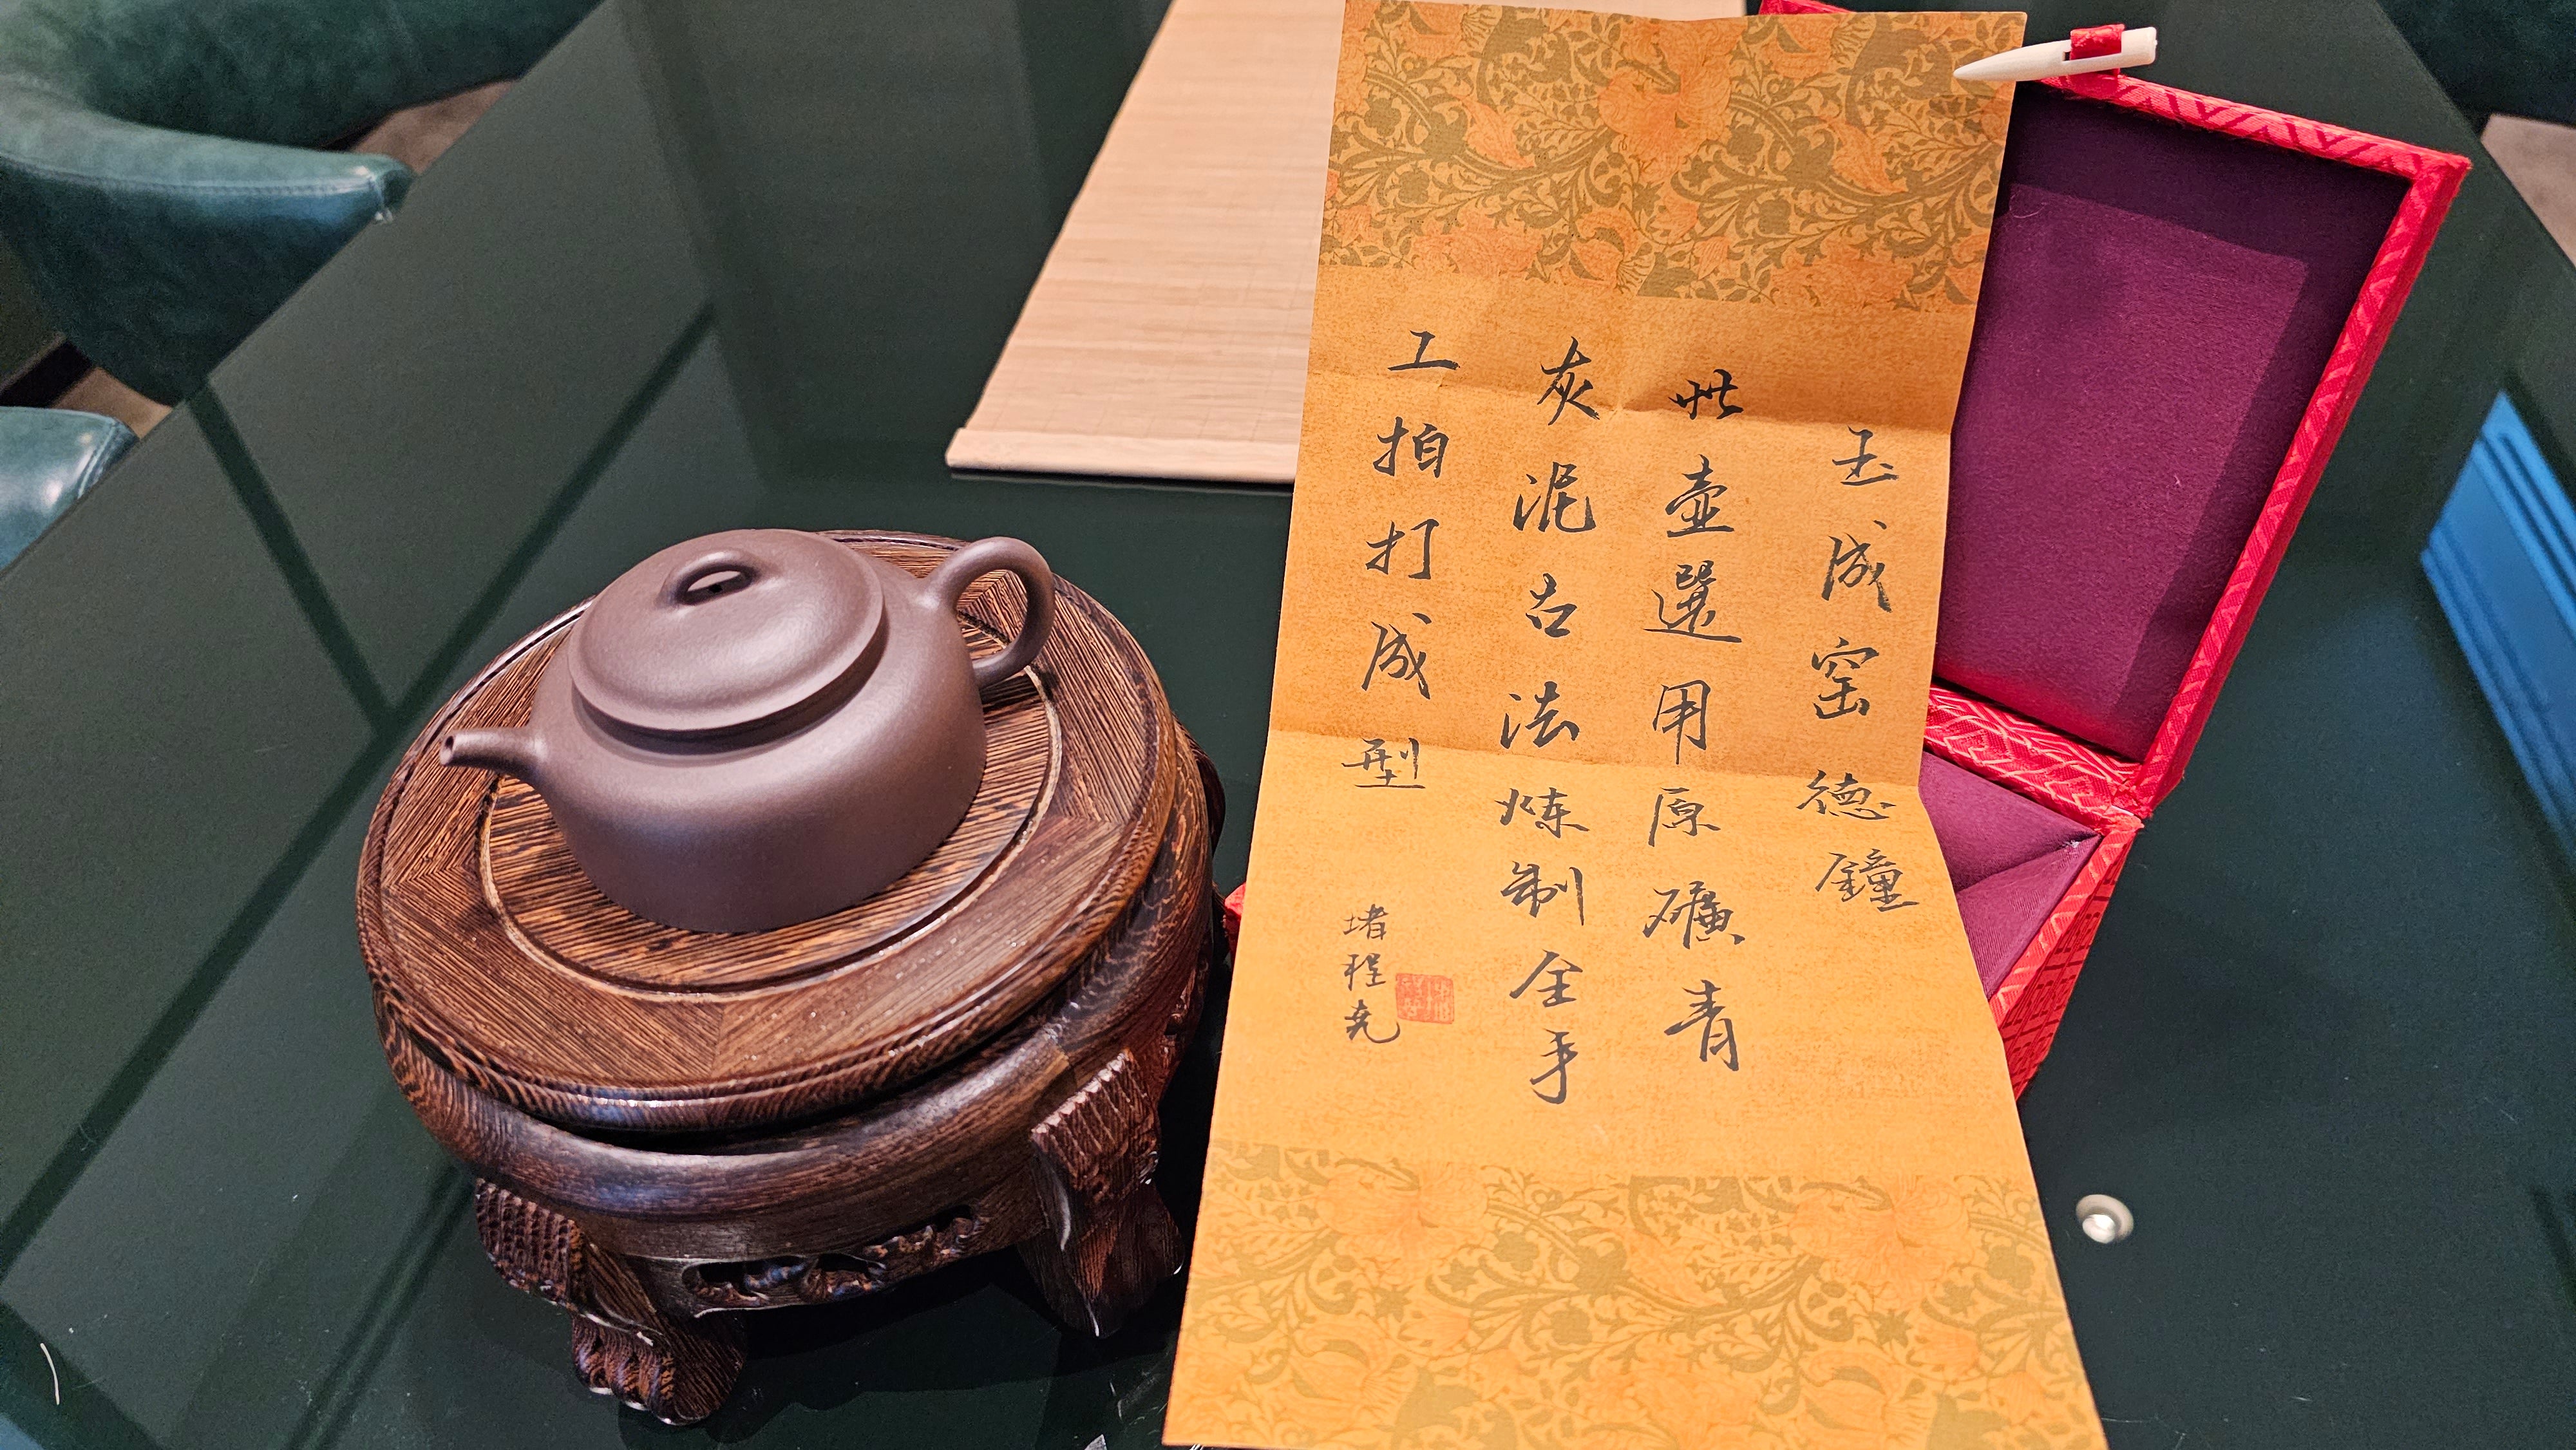 玉成窑德鐘
此壺選用原礦青
灰泥古法炼制全手
工拍打成型
堵程尧